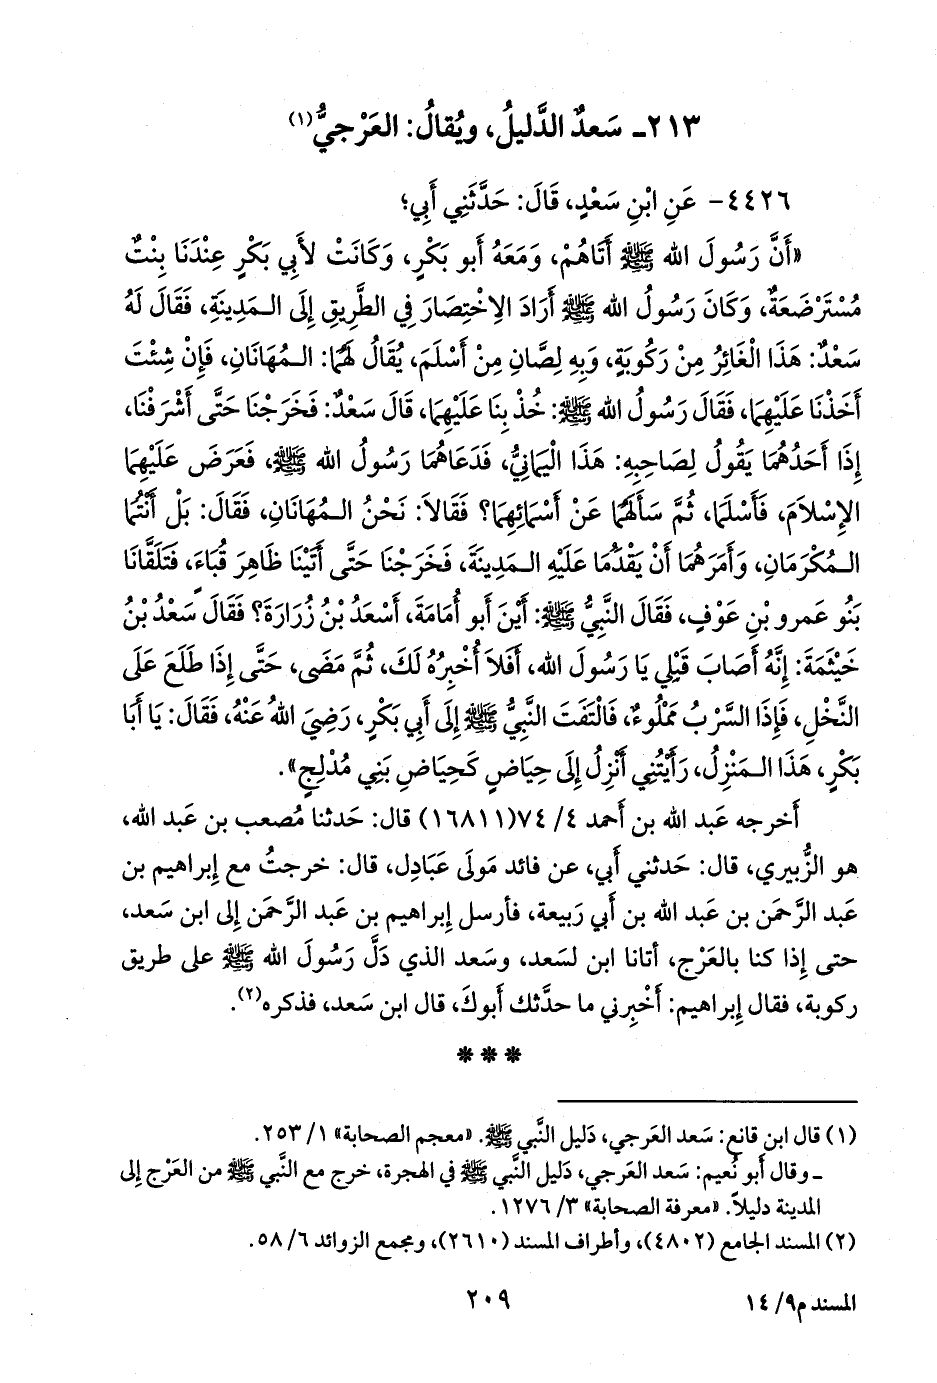 ٢١٣ـ سَعدٌ الدَّليلُ، ويُقالُ: العَرْجيُّ(١)
٤٤٢٦- عَنِ ابْنِ سَعْدٍ، قَالَ: حَدَّثَنِي أَبِي؛
«أَنَّ رَسُولَ الله ﷺ أَتَاهُمْ، وَمَعَهُ أَبو بَكْرٍ، وَكَانَتْ لأَبِي بَكْرٍ عِنْدَنَا بِنْتٌ
مُسْتَرْضَعَةٌ، وَكَانَ رَسُولُ الله ﷺ أَرَادَ الاِخْتِصَارَ فِي الطَّرِيقِ إِلَى الـمَدِينَةِ، فَقَالَ لَهُ
سَعْدٌ: هَذَا الْغَائِرُ مِنْ رَكُوبَةٍ، وَبِهِ لِصَّانِ مِنْ أَسْلَمَ، يُقَالُ لَهُمَا: الـمُهَانَانِ، فَإِنْ شِئْتَ
أَخَذْنَا عَلَيْهِمَا، فَقَالَ رَسُولُ الله ﷺ: خُذْ بِنَا عَلَيْهِمَا، قَالَ سَعْدٌ: فَخَرَجْنَا حَتَّى أَشْرَفْنَا،
إِذَا أَحَدُهُمَا يَقُولُ لِصَاحِبِهِ: هَذَا الْيَمَانِيُّ، فَدَعَاهُمَا رَسُولُ الله ﷺ، فَعَرَضَ عَلَيْهِمَا
الإِسْلاَمَ، فَأَسْلَمَا، ثُمَّ سَأَلَهُمَا عَنْ أَسْمَائِهِمَا؟ فَقَالاَ: نَحْنُ الـمُهَانَانِ، فَقَالَ: بَلْ أَنْتُمَا
الـمُكْرَمَانِ، وَأَمَرَهُمَا أَنْ يَقْدُمَا عَلَيْهِ الـمَدِينَةَ، فَخَرَجْنَا حَتَّى أَتَيْنَا ظَاهِرَ قُبَاءَ، فَتَلَقَّانَا
بَنُو عَمرِو بْنِ عَوْفٍ، فَقَالَ النَّبِيُّ ﷺ: أَيْنَ أَبو أُمَامَةَ، أَسْعَدُ بْنُ زُرَارَةَ؟ فَقَالَ سَعْدُ بْنُ
خَيْثَمَةَ: إِنَّهُ أَصَابَ قَبْلِي يَا رَسُولَ الله، أَفَلاَ أُخْبِرُهُ لَكَ، ثُمَّ مَضَى، حَتَّى إِذَا طَلَعَ عَلَى
النَّخْلِ، فَإِذَا السَّرْبُ مَمْلُوءٌ، فَالْتَفَتَ النَّبِيُّ ﷺ إِلَى أَبِي بَكْرٍ، رَضِيَ اللهُ عَنْهُ، فَقَالَ: يَا أَبَا
بَكْرٍ، هَذَا الـمَنْزِلُ، رَأَيْتُنِي أَنْزِلُ إِلَى حِيَاضٍ كَحِيَاضِ بَنِي مُدْلِجٍ».
أَخرجه عَبد الله بن أَحمد ٤/ ٧٤(١٦٨١١) قال: حَدثنا مُصعب بن عَبد الله،
هو الزُّبيري، قال: حَدثني أَبي، عن فائد مَولَى عَبَادِل، قال: خرجتُ مع إِبراهيم بن
عَبد الرَّحمَن بن عَبد الله بن أَبي رَبيعة، فأَرسل إِبراهيم بن عَبد الرَّحمَن إِلى ابن سَعد،
حتى إِذا كنا بالعَرْج، أَتانا ابن لسَعد، وسَعد الذي دَلَّ رَسُولَ الله ﷺ على طريق
ركوبة، فقال إِبراهيم: أَخْبِرني ما حدَّثك أَبوكَ، قال ابن سَعد، فذكره(٢).
* * *
(١) قال ابن قانع: سَعد العَرجي، دَليل النَّبي ﷺ. «معجم الصحابة» ١/ ٢٥٣.
ـ وقال أَبو نُعيم: سَعد العَرجي، دَليل النَّبي ﷺ في الهجرة، خرج مع النَّبي ﷺ من العَرْج إِلى
المدينة دليلاً. «معرفة الصحابة» ٣/ ١٢٧٦.
(٢) المسند الجامع (٤٨٠٢)، وأطراف المسند (٢٦١٠)، ومجمع الزوائد ٦/ ٥٨.
المسند م٩/ ١٤
٢٠٩